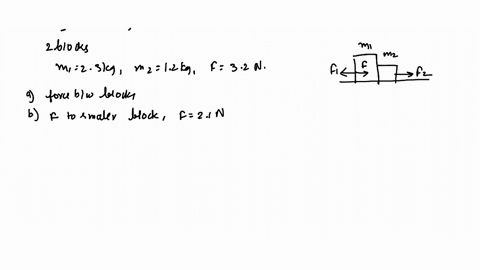 2 blocks
m1 = 2.3kg, m2 = 1.2kg, F = 3.2 N.
a) force b/w blocks
b) F to smaller block, F = 2.1 N
m1
m2
F1
F
F2